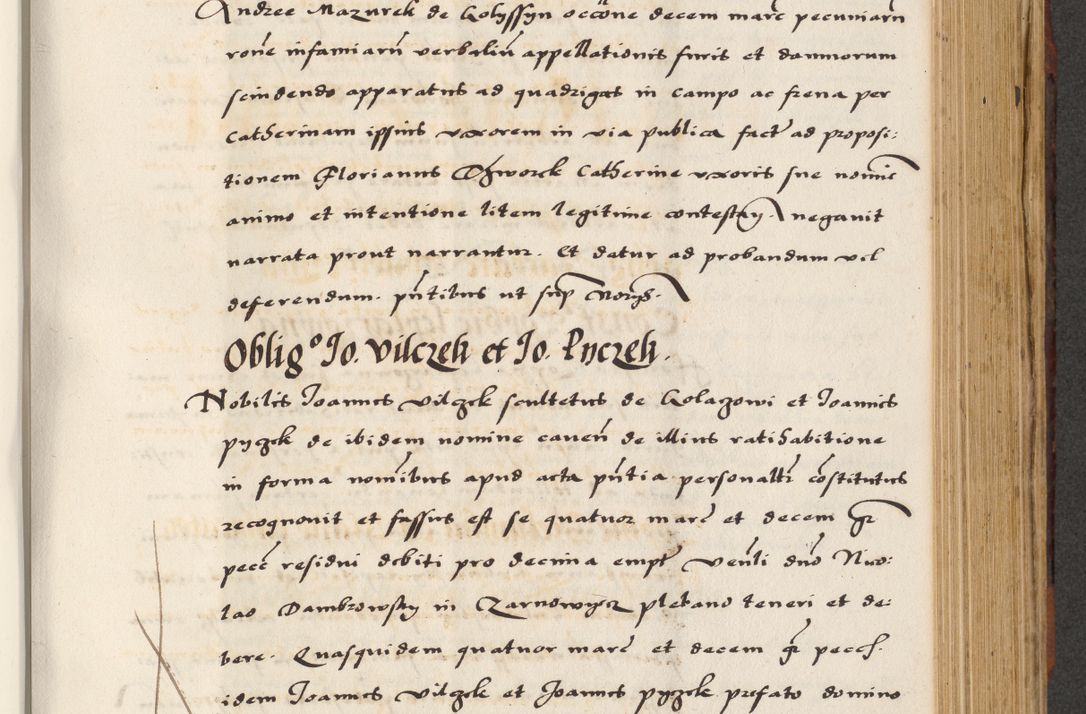 Andree Mazurek de Golyssyn occōne decem marc pecuniarū
rone infamiarū verbaliū appellationis furis et damnorum
scindendo apparatus ad quadrigas in campo ac frena per
Catherinam ipsius vxorem in via publica fact ad proposi:
tionem Florianus Catherine vxoris sue nomic
animo et intentione litem legitime contestan. negauit
narrata prout narrantur. Et datur ad probandum vel
deferendum. pntibus ut sup
Oblig° Io. Vilczek et Io. Pyczek.
Nobilis Ioannes Vilczek scultetus de Golaczowi et Ioannis
pyczek de ibidem nomine cauen de illius ratihabitione
in forma nomibus apud acta pntia personalr costitutus
recognouit et fassus est se quatuor marc et decem gr
pecc residui debiti pro decima empt venli dno Nico:
lao Dambrowsky in Czarnowyecz plebano teneri et de:
bere. Quasquidem quatuor marc et decem gr pecch.
idem Ioannes Vilczek et Joannes pyczek prefato domino